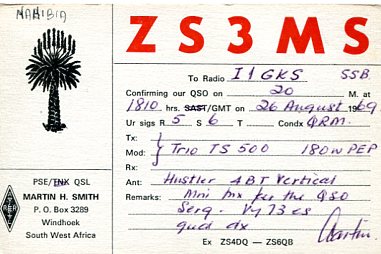 NAMIBIA
ZS3MS
To Radio I1GKS SSB
Confirming our QSO on 20 M. at
1810 hrs. SAST/GMT on 26 August 1969
Ur sigs R 5 S 6 T Condx QRM.
Tx:
Mod: Trio TS 500 180W PEP
Rx:
Ant: Hustler 4BT Vertical
Remarks: Mni tnx for the QSO
Serg. Vy 73 es
gud dx Martin.
PSE/TNX QSL
MARTIN H. SMITH
P. O. Box 3289
Windhoek
South West Africa
Ex ZS4DQ — ZS6QB